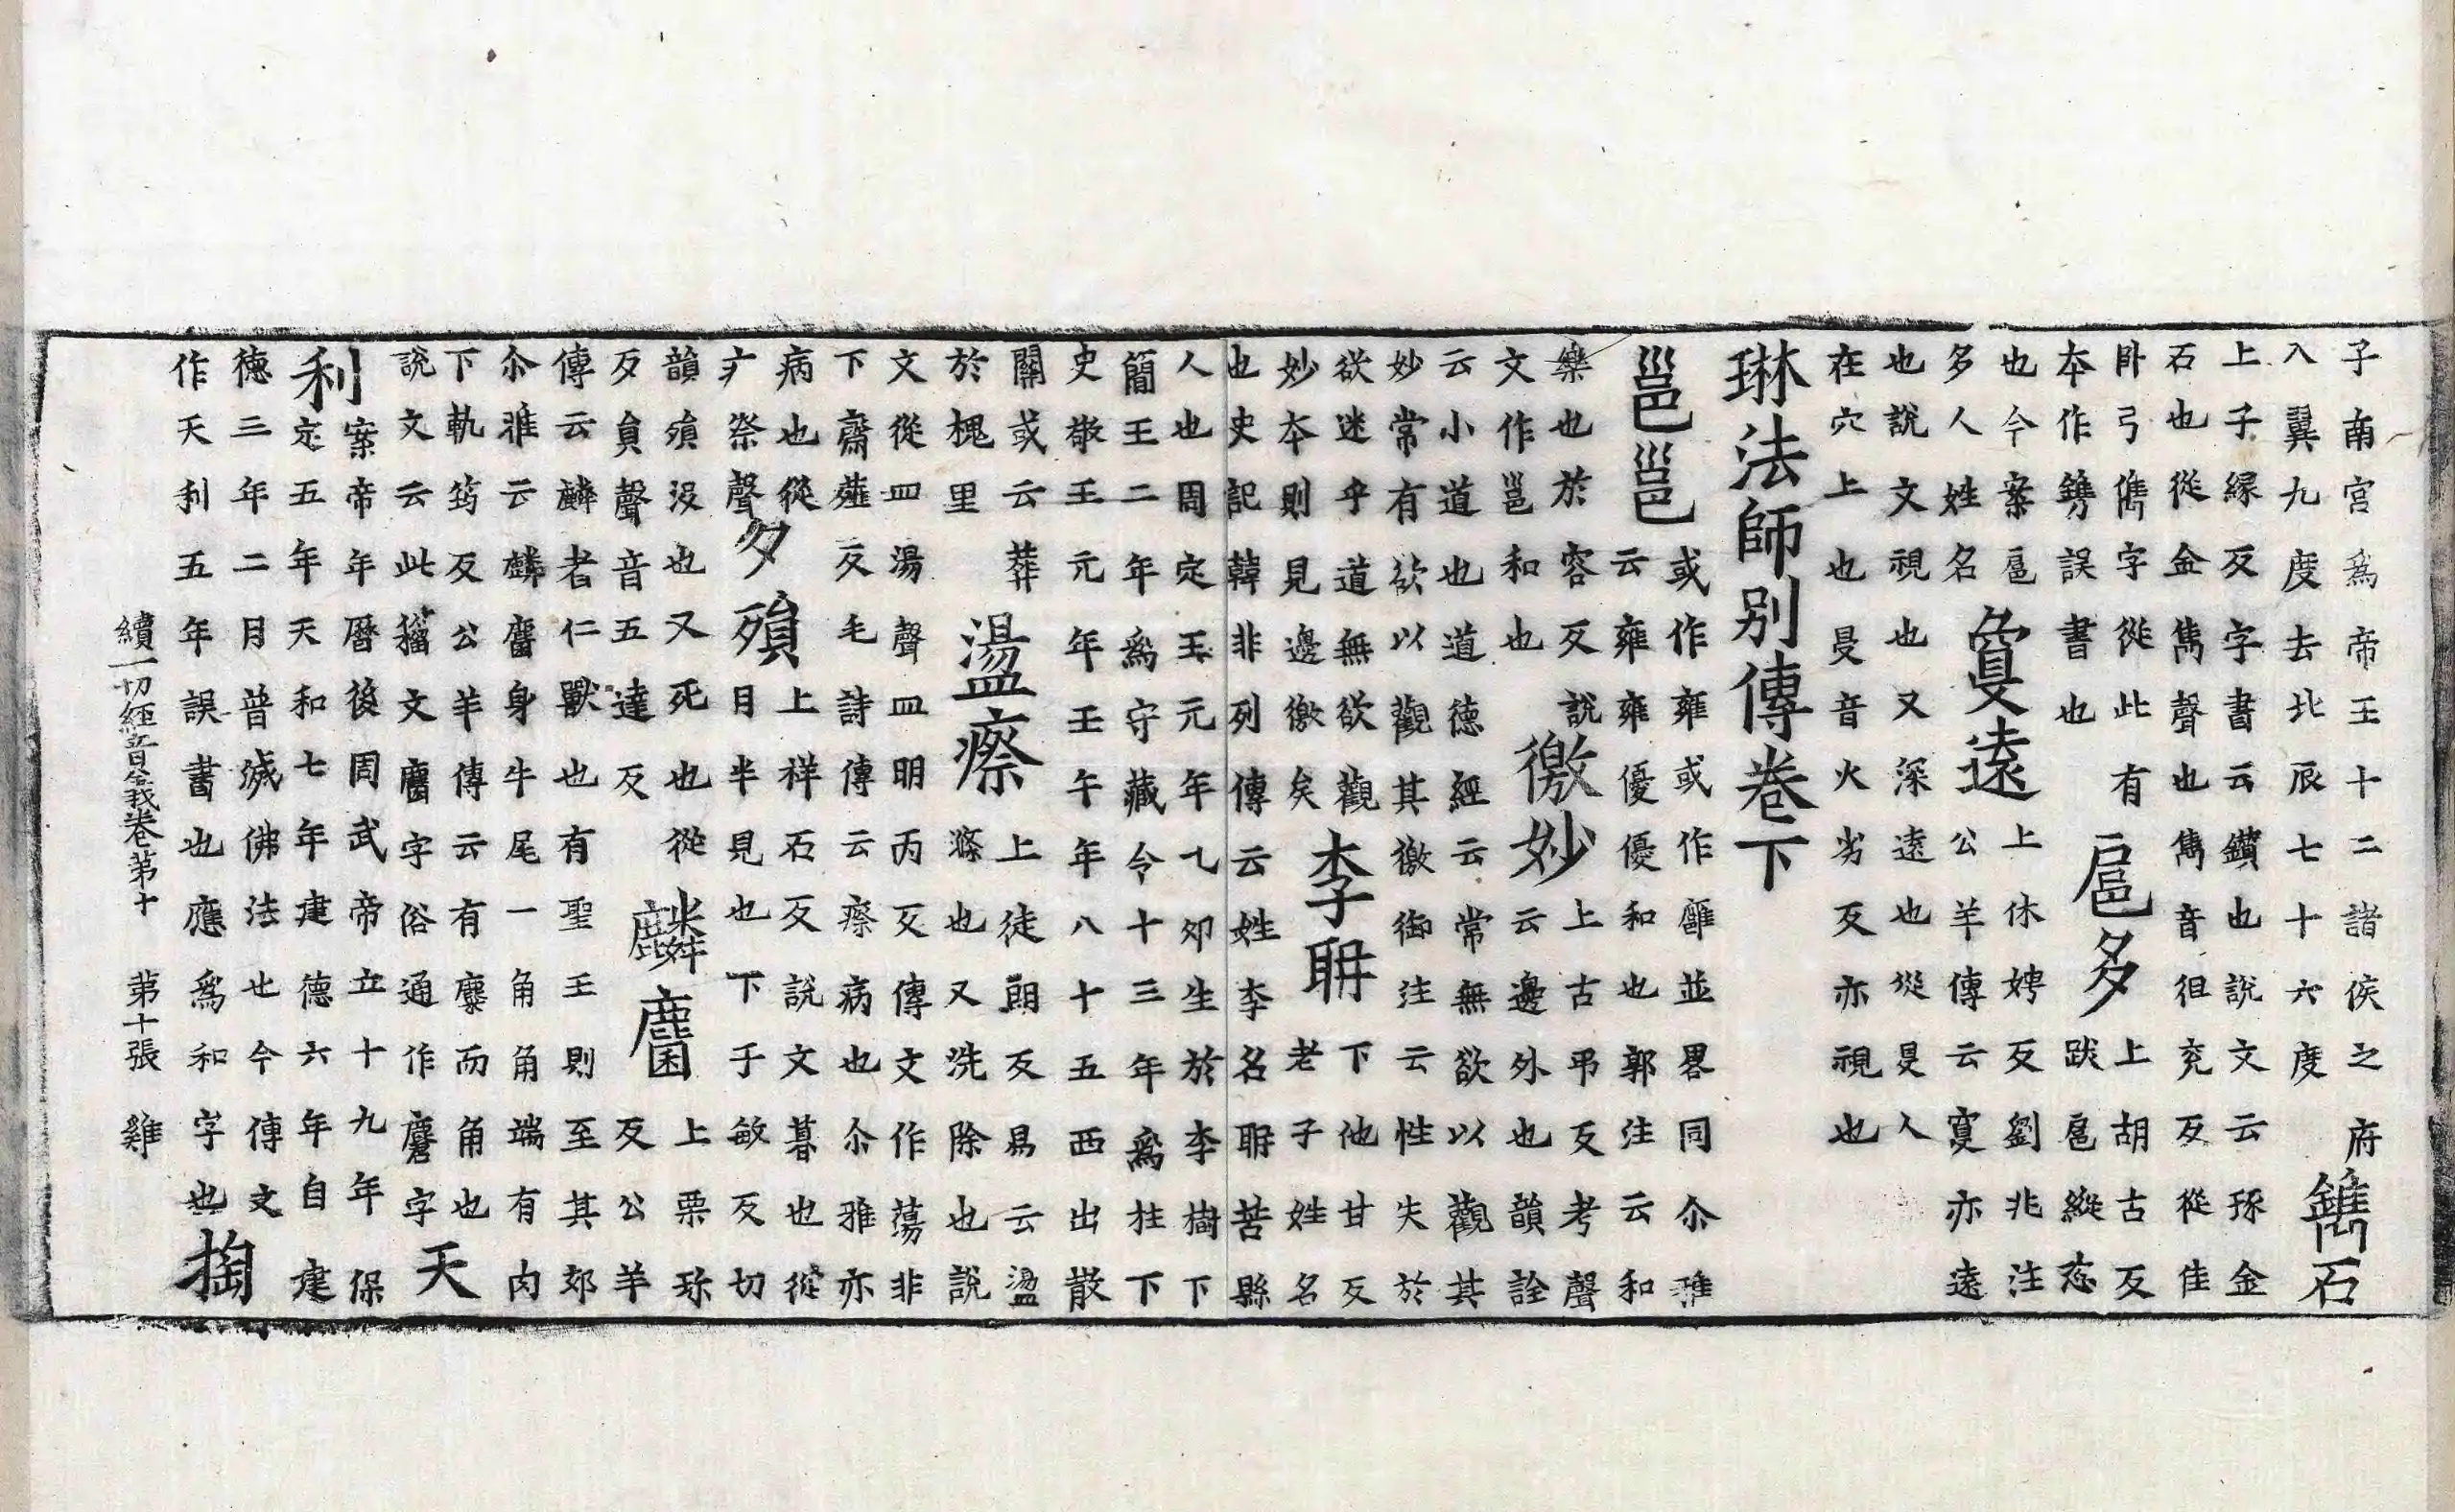 子南宮為帝王十二諸侯之府
入翼九度去北辰七十六度
鐫石
上子緣反字書云鑽也說文云琢金
石也從金雋聲也雋音徂兖反從隹
卧弓儁字從此有
本作鎸誤書也
扈多
上胡古反
跋扈縱恣
也今案扈
多人姓名
敻遠
上休娉反劉兆注
公羊傳云敻亦遠
也說文視也又深遠也從㫐人
在穴上也㫐音火劣反亦視也
琳法師別傳卷下
邕邕
或作雍或作雝並畧同尒雅
云雍雍優優和也郭注云和
樂也於容反說
文作邕和也
徼妙
上古弔反考聲
云邊外也韻詮
云小道也道德經云常無欲以觀其
妙常有欲以觀其徼御注云性失於
欲迷乎道無欲觀
妙本則見邊徼矣
李聃
下他甘反
老子姓名
也史記韓非列傳云姓李名聃苦縣
人也周定王元年乙夘生於李樹下
簡王二年為守藏令十三年為柱下
史敬王元年壬午年八十五西出散
關或云葬
於槐里
盪瘵
上徒朗反易云盪
滌也又洗除也說
文從皿湯聲皿明丙反傳文作蕩非
下齋薤反毛詩傳云瘵病也尒雅亦
病也從
疒祭聲
夕殞
上祥石反說文暮也從
月半見也下于敏反切
韻殞沒也又死也從
歹員聲音五達反
麟麕
上栗珎
反公羊
傳云麟者仁獸也有聖王則至其郊
尒雅云麟麕身牛尾一角角端有肉
下軌筠反公羊傳云有麋而角也
說文云此籀文麕字俗通作麏字
天
利
案帝年曆後周武帝立十九年保
定五年天和七年建德六年自建
德三年二月普滅佛法也今傳文
作天利五年誤書也應為和字也
掏
續一切經音義卷第十 第十張 雞